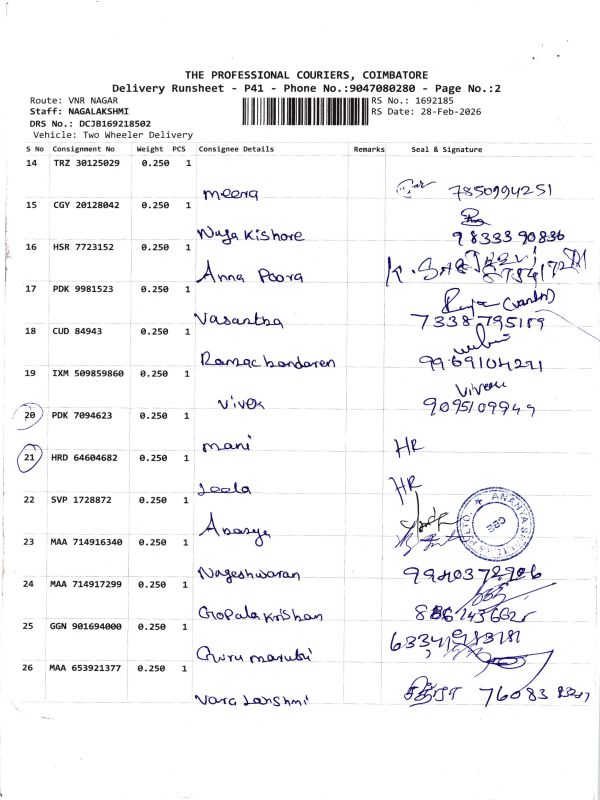 THE PROFESSIONAL COURIERS, COIMBATORE
Delivery Runsheet - P41 - Phone No.:9047080280 - Page No.:2
Route: VNR NAGAR RS No.: 1692185
Staff: NAGALAKSHMI RS Date: 28-Feb-2026
DRS No.: DCJB169218502
Vehicle: Two Wheeler Delivery
S No Consignment No Weight PCS Consignee Details Remarks Seal & Signature
14 TRZ 30125029 0.250 1
Meera 7850994251
15 CGY 20128042 0.250 1
Kishore 9833390836
16 HSR 7723152 0.250 1
Anna Poora
17 PDK 9981523 0.250 1
Vasantha 7338795189
18 CUD 84943 0.250 1
Ramachandaren 9969104271
19 IXM 509859860 0.250 1
Vivek
Vivek 9095109949
20 PDK 7094623 0.250 1
Mani HR
21 HRD 64604682 0.250 1
Leela HR
22 SVP 1728872 0.250 1
ANANYA CBE
23 MAA 714916340 0.250 1
Nageshwaran
24 MAA 714917299 0.250 1
Gopala Krishan
25 GGN 901694000 0.250 1
Guru
26 MAA 653921377 0.250 1
Vara Lakshmi 76083